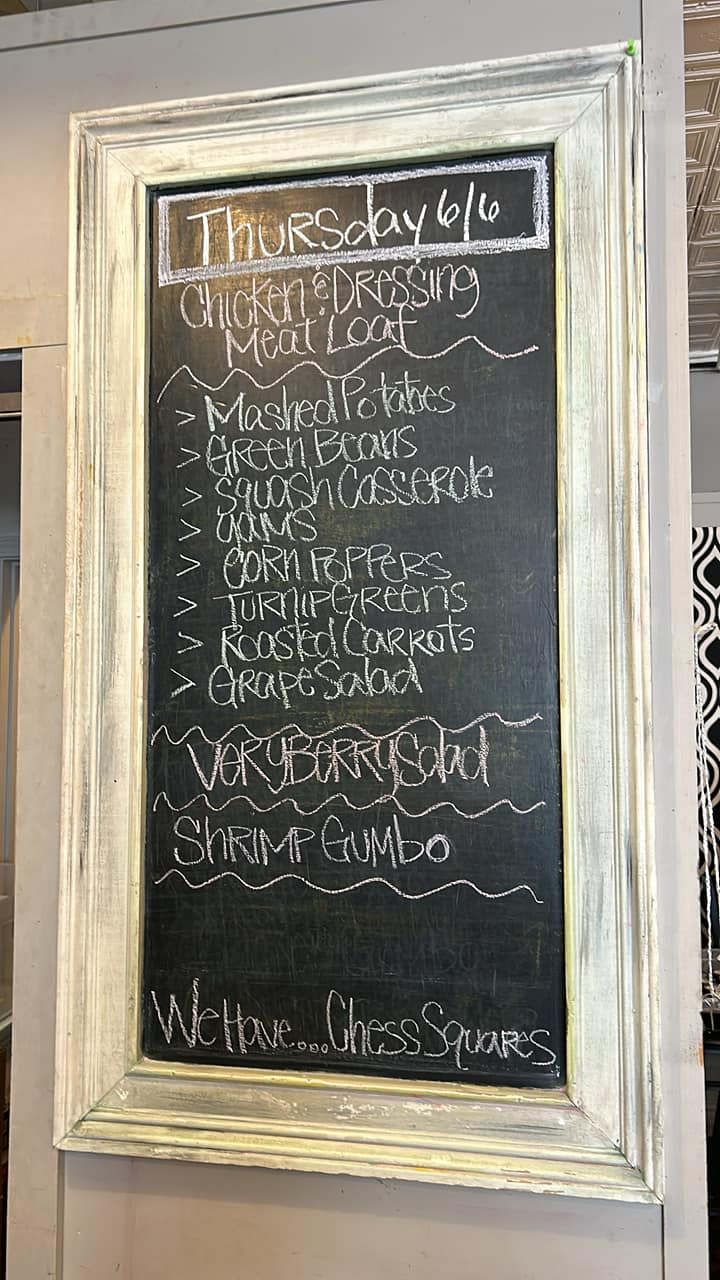 Thursday 6/6
Chicken & Dressing
Meat Loaf
> Mashed Potatoes
> Green Beans
> Squash Casserole
> Yams
> Corn Poppers
> Turnip Greens
> Roasted Carrots
> Grape Salad
Very Berry Salad
Shrimp Gumbo
We Have... Chess Squares